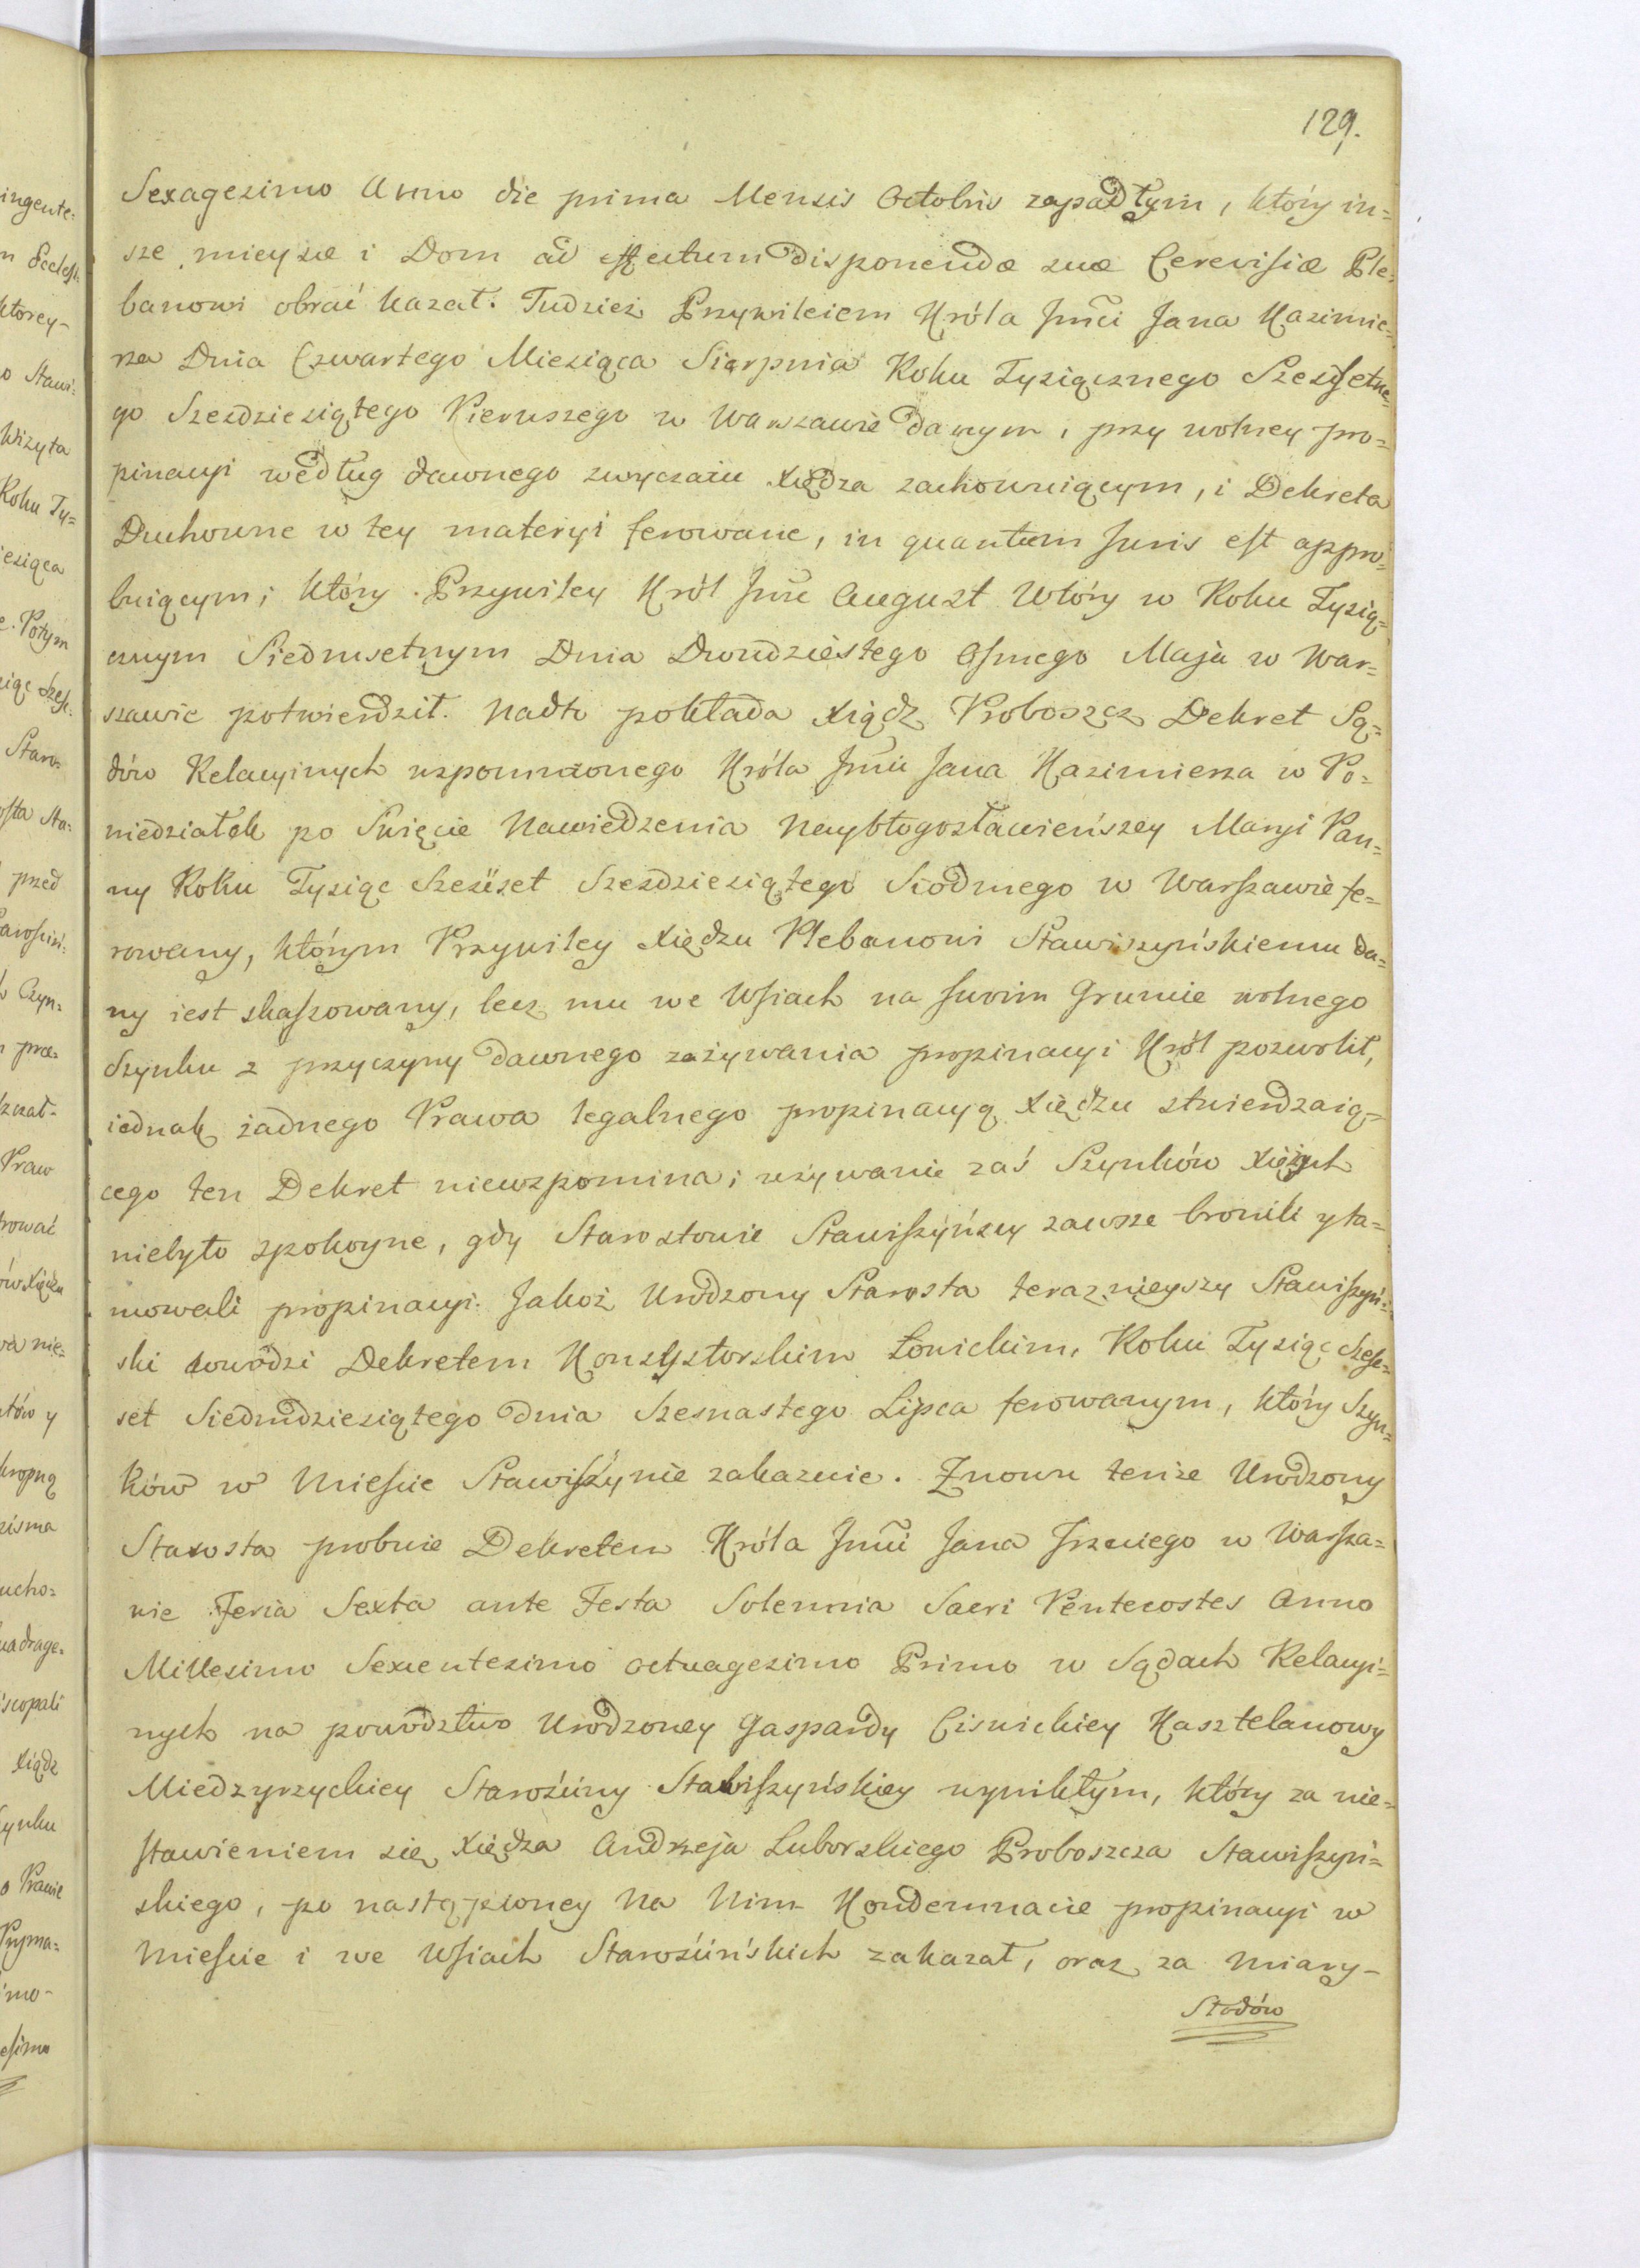 129.
Sexagesimo Anno die prima Mensis Octobris zapadłym, który in=
sze mieysce i Dom ad effectum disponendæ suæ Cerevisiæ Ple=
banowi obrać kazał. Tudzież Przywileiem Króla Jmći Jana Kazimie=
rza Dnia Czwartego Miesiąca Sierpnia Roku Tysiącznego Sześćsetne=
go Sześdziesiątego Pierwszego w Warszawie danym, przy wolney pro=
pinacyi według dawnego zwyczaiu Xiędza zachowuiącym, i Dekreta
Duchowne w tey materyi ferowane, in quantum Juris est appro=
buiącym; który Przywiley Król Jmć August Wtóry w Roku Tysią=
cznym Siedmsetnym Dnia Dwudziestego Osmego Maja w War=
szawie potwierdził. Nadto pokłada Xiądz Proboszcz Dekret Są=
dów Relacyinych wspomnionego Króla Jmći Jana Kazimierza w Po=
niedziałek po Święcie Nawiedzenia Naybłogosławieńszey Maryi Pan=
ny Roku Tysiąc Sześćset Sześdziesiątego Siodmego w Warszawie fe=
rowany, którym Przywiley Xiędzu Plebanowi Stawiszyńskiemu da=
ny iest skaszowany, lecz mu we Wsiach na swoim Gruncie wolnego
Szynku z przyczyny dawnego zażywania propinacyi Król pozwolił,
iednak żadnego Prawa legalnego propinacyą Xiędzu stwierdzaią=
cego ten Dekret niewspomina; używanie zaś Szynków Xiężych
niebyło spokoyne, gdy Starostowie Stawiszyńscy zawsze bronili y ta=
mowali propinacyi. Jakoż Urodzony Starosta teraznieyszy Stawiszyń=
ski dowodzi Dekretem Konsystorskim Łowickim, Roku Tysiąc Sześć=
set Siedmdziesiątego Dnia Szesnastego Lipca ferowanym, który Szyn=
ków w Mieście Stawiszynie zakazuie. Znowu tenże Urodzony
Starosta probuie Dekretem Króla Jmći Jana Trzeciego w Warsza=
wie Feria Sexta ante Festa Solennia Sacri Pentecostes Anno
Millesimo Sexcentesimo octuagesimo Primo w Sądach Relacyi=
nych na powodztwo Urodzoney Gaspardy Cisnickiey Kasztelanowy
Miedzyrzyckiey Starościny Stawiszyńskiey wynikłym, który za nie=
stawieniem się Xiędza Andrzeja Luborskiego Proboszcza Stawiszyń=
skiego, po nastąpioney Na Nim Kondemnacie propinacyi w
Mieście i we Wsiach Starościńskich zakazał, oraz za Miary-
Słodów